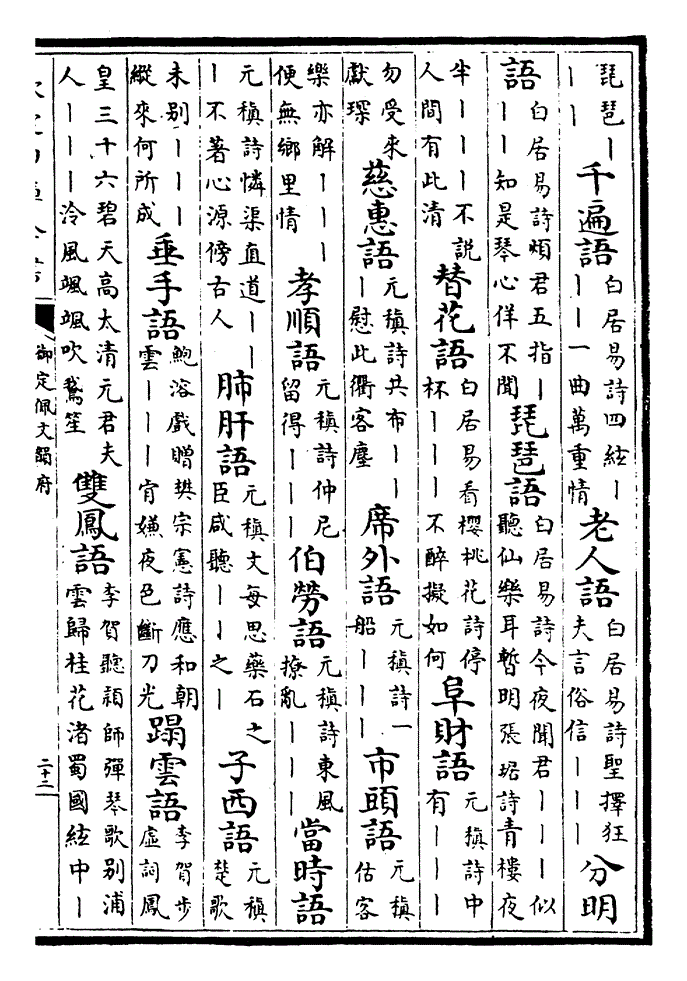 琵琶丨丨丨千遍語白居易詩四絃丨丨丨一曲萬重情老人語白居易詩聖擇狂夫言俗信丨丨丨分明
語白居易詩煩君五指丨丨丨知是琴心佯不聞琵琶語白居易詩今夜聞君丨丨丨似聽仙樂耳暫明張琚詩青樓夜
半丨丨丨不説人間有此清替花語白居易看櫻桃花詩停杯丨丨丨不醉擬如何阜財語元稹詩中有丨丨丨
勿受來獻琛慈惠語元稹詩共布丨丨丨慰此衢客塵席外語元稹詩一船丨丨丨市頭語元稹估客
樂亦解丨丨丨便無鄉里情孝順語元稹詩仲尼留得丨丨丨伯勞語元稹詩東風撩亂丨丨丨當時語
元稹詩憐渠直道丨丨丨不著心源傍古人肺肝語元稹文每思藥石之臣咸聽丨丨之丨子西語元稹楚歌
未别丨丨丨縱來何所成垂手語鮑溶戲贈樊宗憲詩應和朝雲丨丨丨肯嫌夜色斷刀光蹋雲語李賀步虛詞鳳
皇三十六碧天高太清元君夫人丨丨丨泠風颯颯吹鵞笙雙鳳語李賀聽穎師彈琴歌别浦雲歸桂花渚蜀國絃中丨
御定佩文韻府
二十二